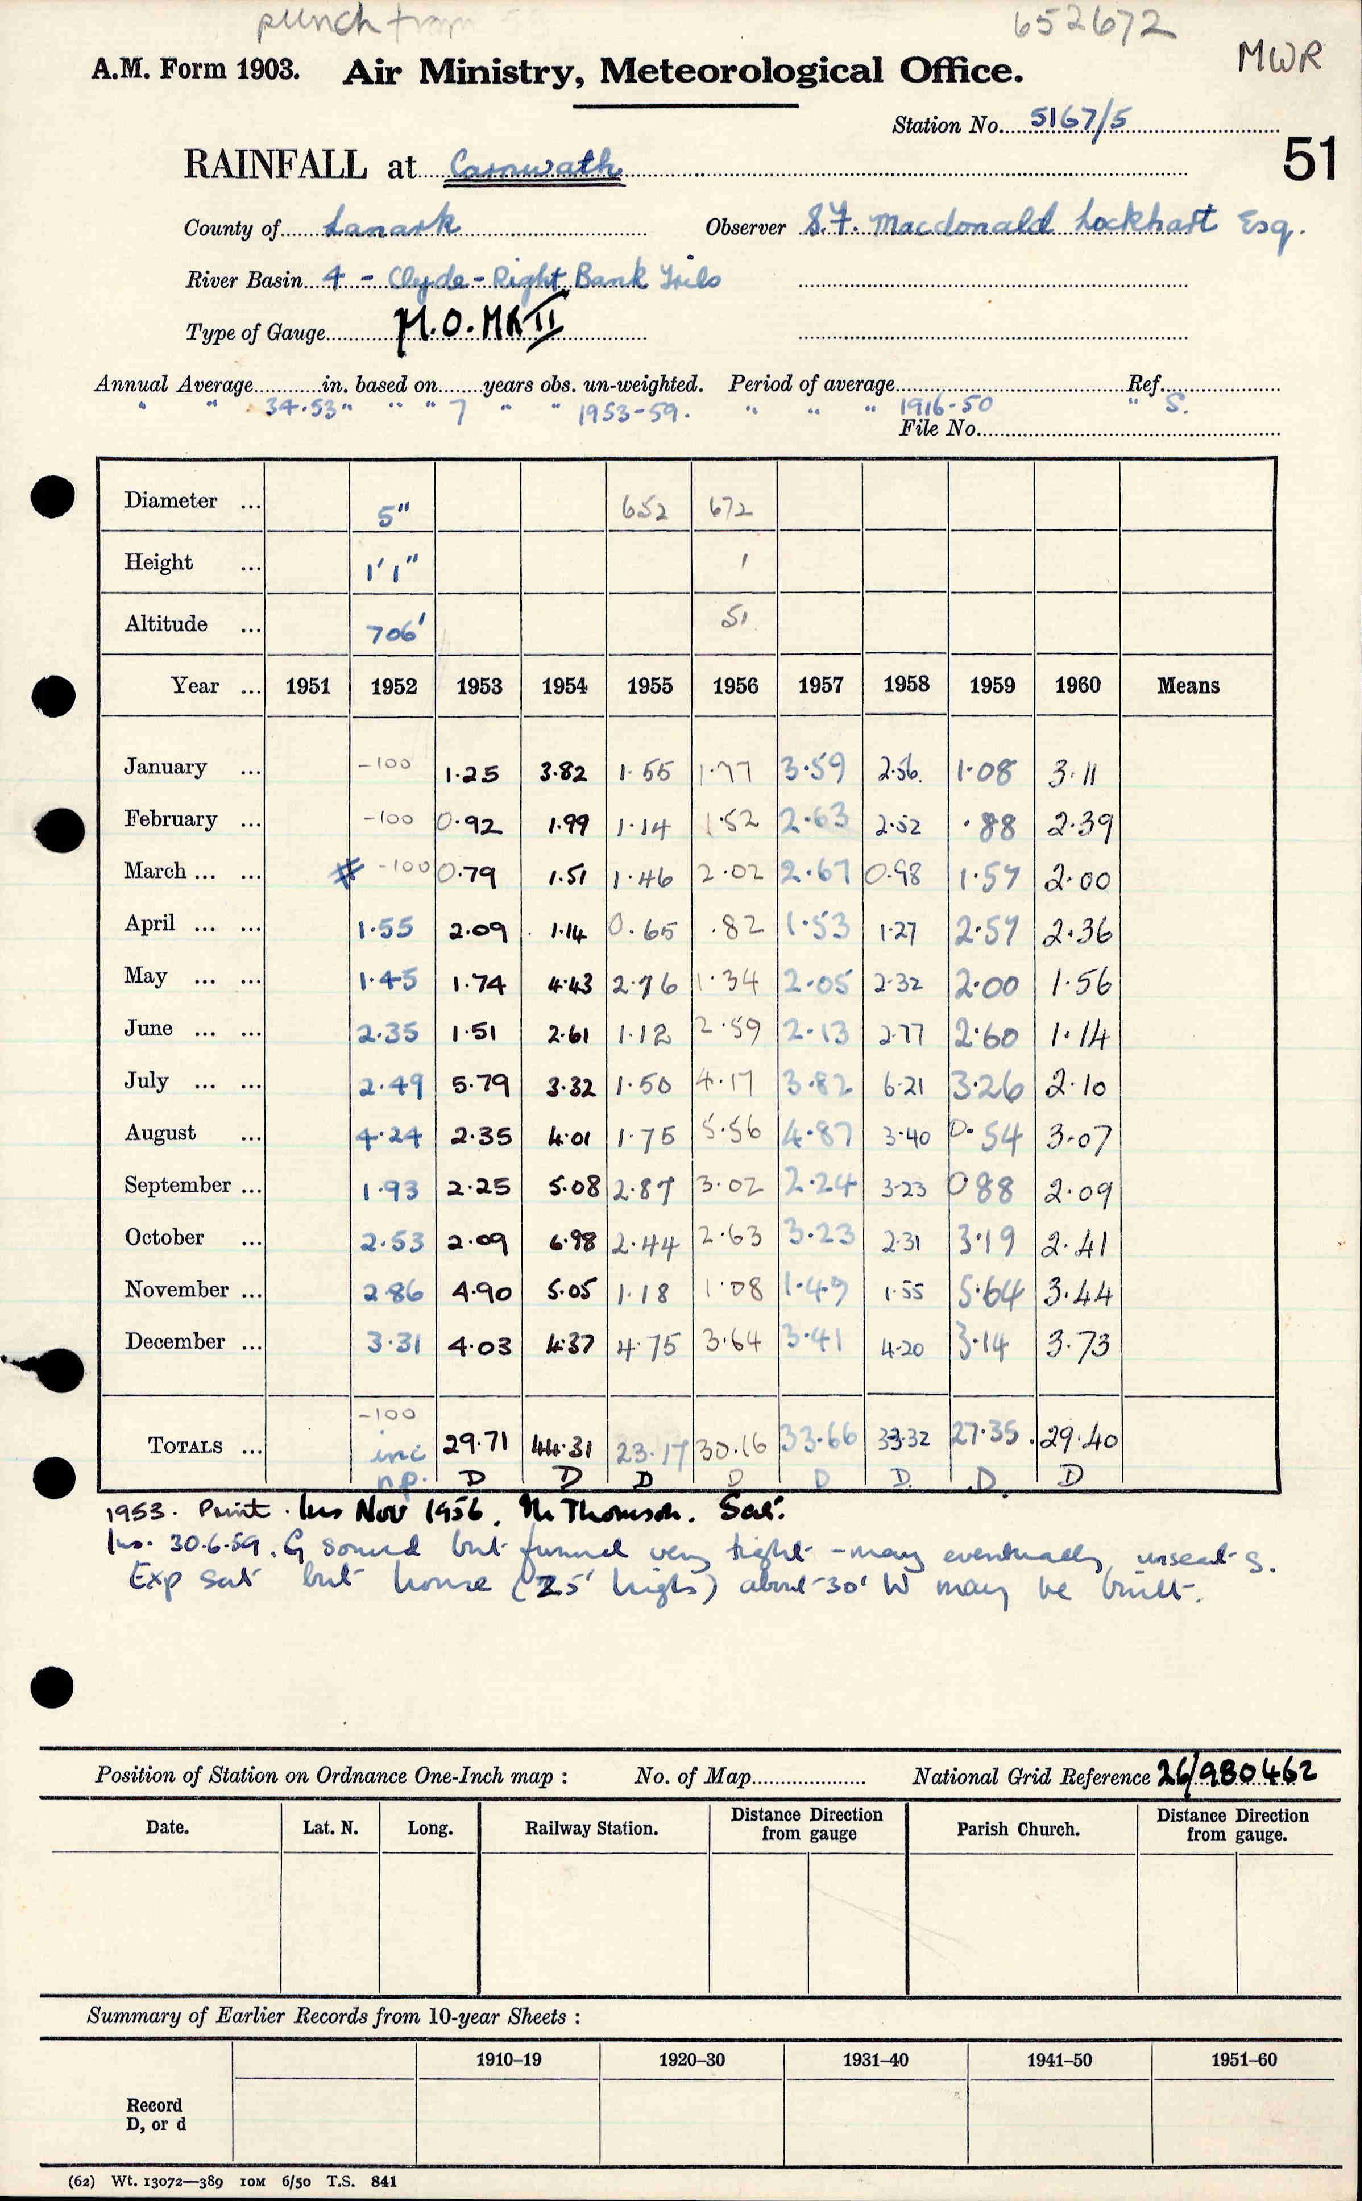 punch from
652672
MWR
A.M. Form 1903. Air Ministry, Meteorological Office.
Station No. 5167/5
51
RAINFALL at Carnwath
County of Lanark Observer S.F. Macdonald Lockhart Esq.
River Basin 4 - Clyde - Right Bank Tribs
Type of Gauge M.O. MK II
Annual Average in. based on years obs. un-weighted. Period of average Ref.
" " 34.53 " " " 7 " " 1953-59. " " " 1916-50 " S.
File No.
Diameter ... 5" 652 672
Height ... 1'1" 1
Altitude ... 706' 51
Year ... 1951 1952 1953 1954 1955 1956 1957 1958 1959 1960 Means
January ... -100 1.25 3.82 1.55 1.77 3.59 2.56. 1.08 3.11
February ... -100 0.92 1.99 1.14 1.52 2.63 2.52 .88 2.39
March ... ... # -100 0.79 1.51 1.46 2.02 2.67 0.98 1.57 2.00
April ... ... 1.55 2.09 1.14 0.65 .82 1.53 1.27 2.57 2.36
May ... ... 1.45 1.74 4.43 2.76 1.34 2.05 2.32 2.00 1.56
June ... ... 2.35 1.51 2.61 1.12 2.59 2.13 2.77 2.60 1.14
July ... ... 2.49 5.79 3.32 1.50 4.17 3.82 6.21 3.26 2.10
August ... 4.24 2.35 4.01 1.75 5.56 4.87 3.40 0.54 3.07
September ... 1.93 2.25 5.08 2.87 3.02 2.24 3.23 0.88 2.09
October ... 2.53 2.09 6.98 2.44 2.63 3.23 2.31 3.19 2.41
November ... 2.86 4.90 5.05 1.18 1.08 1.49 1.55 5.64 3.44
December ... 3.31 4.03 4.37 4.75 3.64 3.41 4.20 3.14 3.73
-100
TOTALS ... inc 29.71 44.31 23.17 30.16 33.66 33.32 27.35 29.40
n.p. D D D D D D. D. D
1953. Print. Ins Nov 1956. Mr Thomson. Sat.
Ins. 30.6.59. G sound but funnel very tight - may eventually unseat g.
Exp sat but house (25' high) about 30' W may be built.
Position of Station on Ordnance One-Inch map : No. of Map National Grid Reference 26/980462
Date. Lat. N. Long. Railway Station. Distance Direction from gauge Parish Church. Distance Direction from gauge.
Summary of Earlier Records from 10-year Sheets :
1910–19 1920–30 1931–40 1941–50 1951–60
Record
D, or d
(62) Wt. 13072—389 10M 6/50 T.S. 841